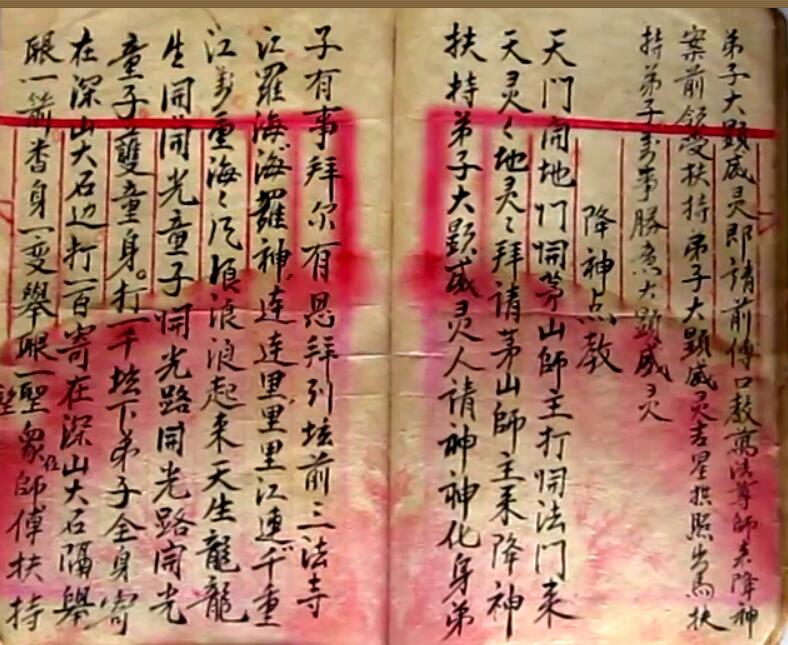 弟子大顕威灵即請前傅口教萬法尊師来降神
案前領受扶持弟子大顕威灵吉星拱照出馬扶
持弟子萬事勝意大顕威灵
降神点教
天門開地门開茅山師主打開法门来
天灵々地灵々拜請茅山師主来降神
扶持弟子大顕威灵人請神神化身弟
子有事拜尔有恩拜列坛前三法寺
江羅海海羅神連連里里里江連千重
江萬重海々浪浪浪起来天生龍龍
生開開光童子開光路開光路開光
童子雙童身。打一千坛下弟子全身寄
在深山大石边打一百寄在深山大石隔舉
眼一箭香身一变舉眼一聖众師傅扶持